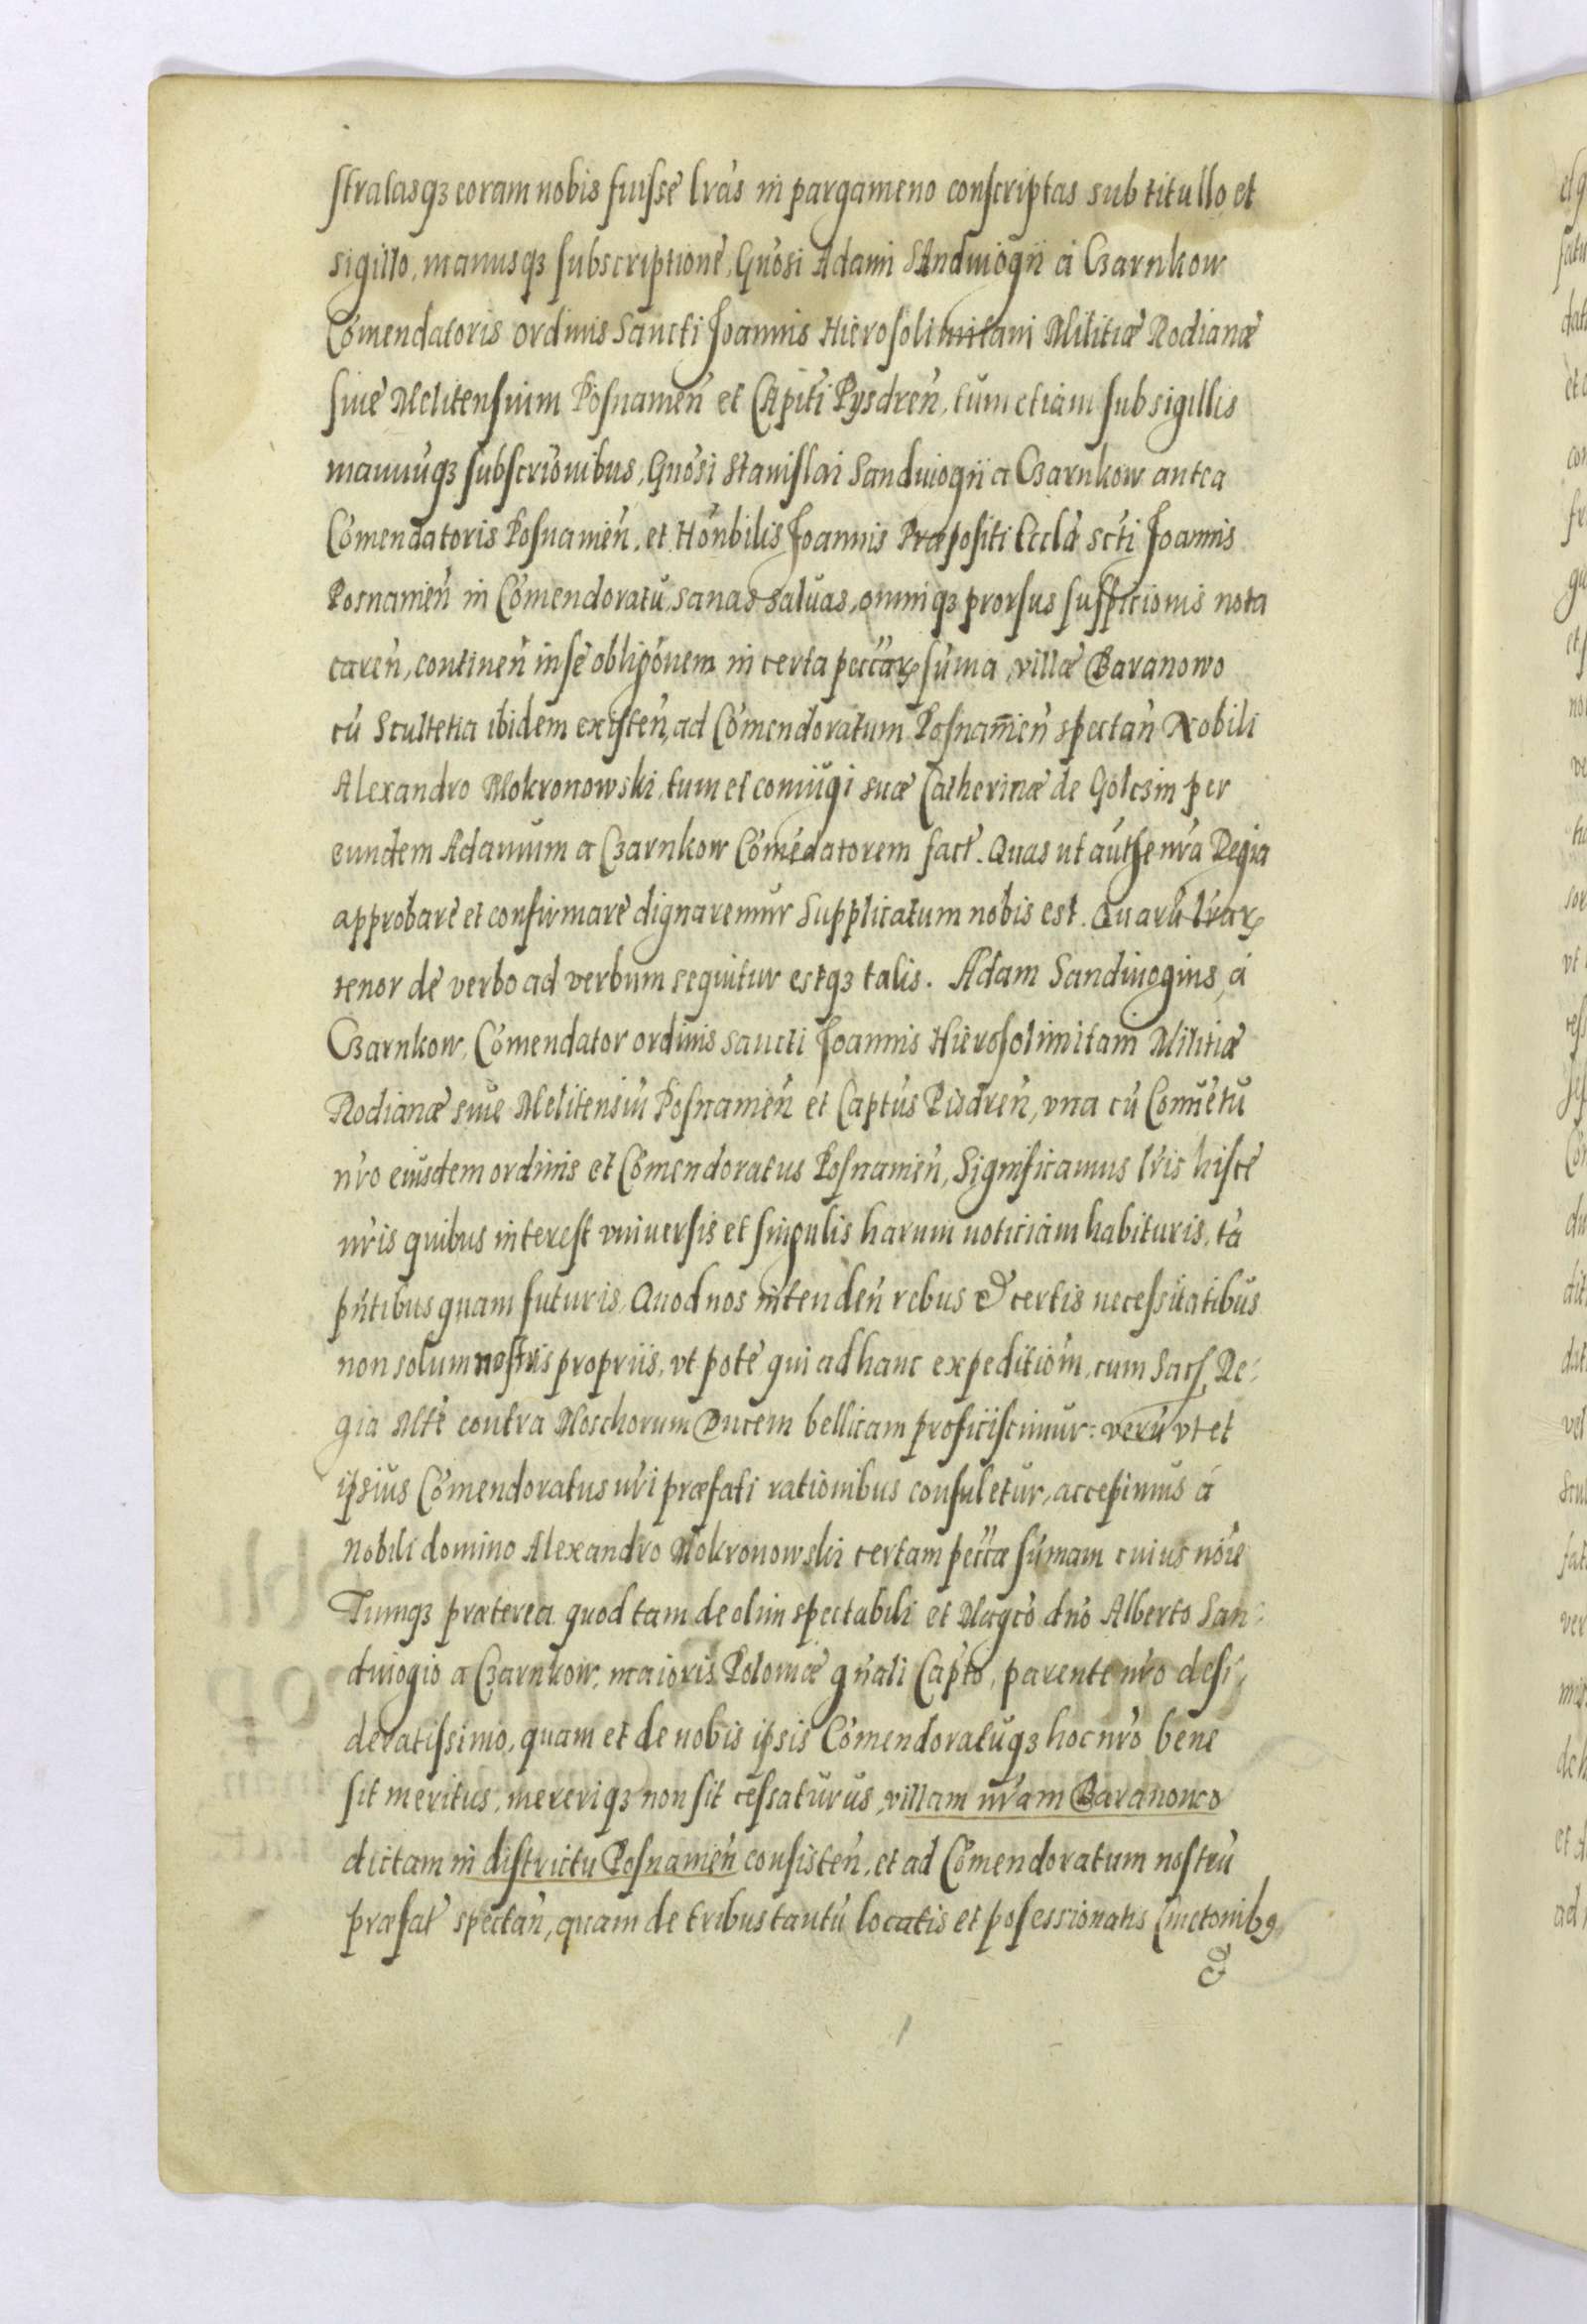 stratasqꝫ coram nobis fuisse lr̃as in pargameno conscriptas sub titullo et
sigillo, manusqꝫ subscriptione, Gnosi Adami SAndiuiogii à Czarnkow
Cõmendatoris ordinis Sancti Joannis Hierosolimitani Militiæ Rodianæ
siue Melitensium Posnamen̄ et CApiti Pysdren̄, tum etiam sub sigillis
manuũqꝫ subscrionibus, Gnosi Stanislai Sanduiogii a Czarnkow antea
Cõmendatoris Posnamen̄, et Honbilis Joannis Præpositi Eccla scti Joannis
Posnamen̄ in Cõmendoratũ, sanas saluas, omniqꝫ prorsus suspicionis nota
caren̄, continen̄ in se obligonem in certa pecciar̨ sũma, villæ Baranowo
cũ Scultetia ibidem existen̄, ad Cõmendoratum Posnam̄en̄ spectan̄ Nobili
Alexandro Mokronowski, tum et coniugi suæ Catherinæ de Golesin per
eundem Adamum a Czarnkow Cõmẽdatorem fact̃. Quas ut authe nr̃a Regia
approbare et confirmare dignaremur Supplicatum nobis est. Quarũ lr̃ar̨
tenor de verbo ad verbum sequitur estqꝫ talis. Adam Sandiuogius, à
Czarnkow, Cõmendator ordinis sancti Joannis Hierosolimitani Militiæ
Rodianæ siue Melitensiũ Posnamen̄ et Captus Pisdren̄, vna cũ Conuẽtu
nr̃o eiusdem ordinis et Cõmendoratus Posnamien̄, Significamus lr̃is hisce
nr̃is quibus interest vniuersis et singulis harum noticiam habituris, tã
pñtibus quam futuris, Quod nos intenden̄ rebus & certis necessitatibus
non solum nostris propriis, vt pote qui ad hanc expeditiõm, cum Sacꝭ, Re-
gia Mt̃e contra Moschorum Ducem bellicam proficiscimur: verũ vt et
ipsius Cõmendoratus nr̃i præfati rationibus consuletur, accepimus à
Nobili domino Alexandro Mokronowski certam pecciæ sũmam cuius noie
Tumqꝫ præterea quod tam de olim spectabili et Magco dno Alberto San-
duiogio a Czarnkow, maioris Poloniæ gñali Capto, parente nr̃o desi-
deratissimo, quam et de nobis ipsis Cõmendoratuqꝫ hoc nr̃o bene
sit meritus, mereriqꝫ non sit cessaturus, villam nr̃am Baranouco
dictam in districtu Posnamen̄ consisten̄, et ad Cõmendoratum nostrũ
præfat̃ spectan̄, quam de tribus tantũ locatis et posessionatis Cmetonibꝰ
&